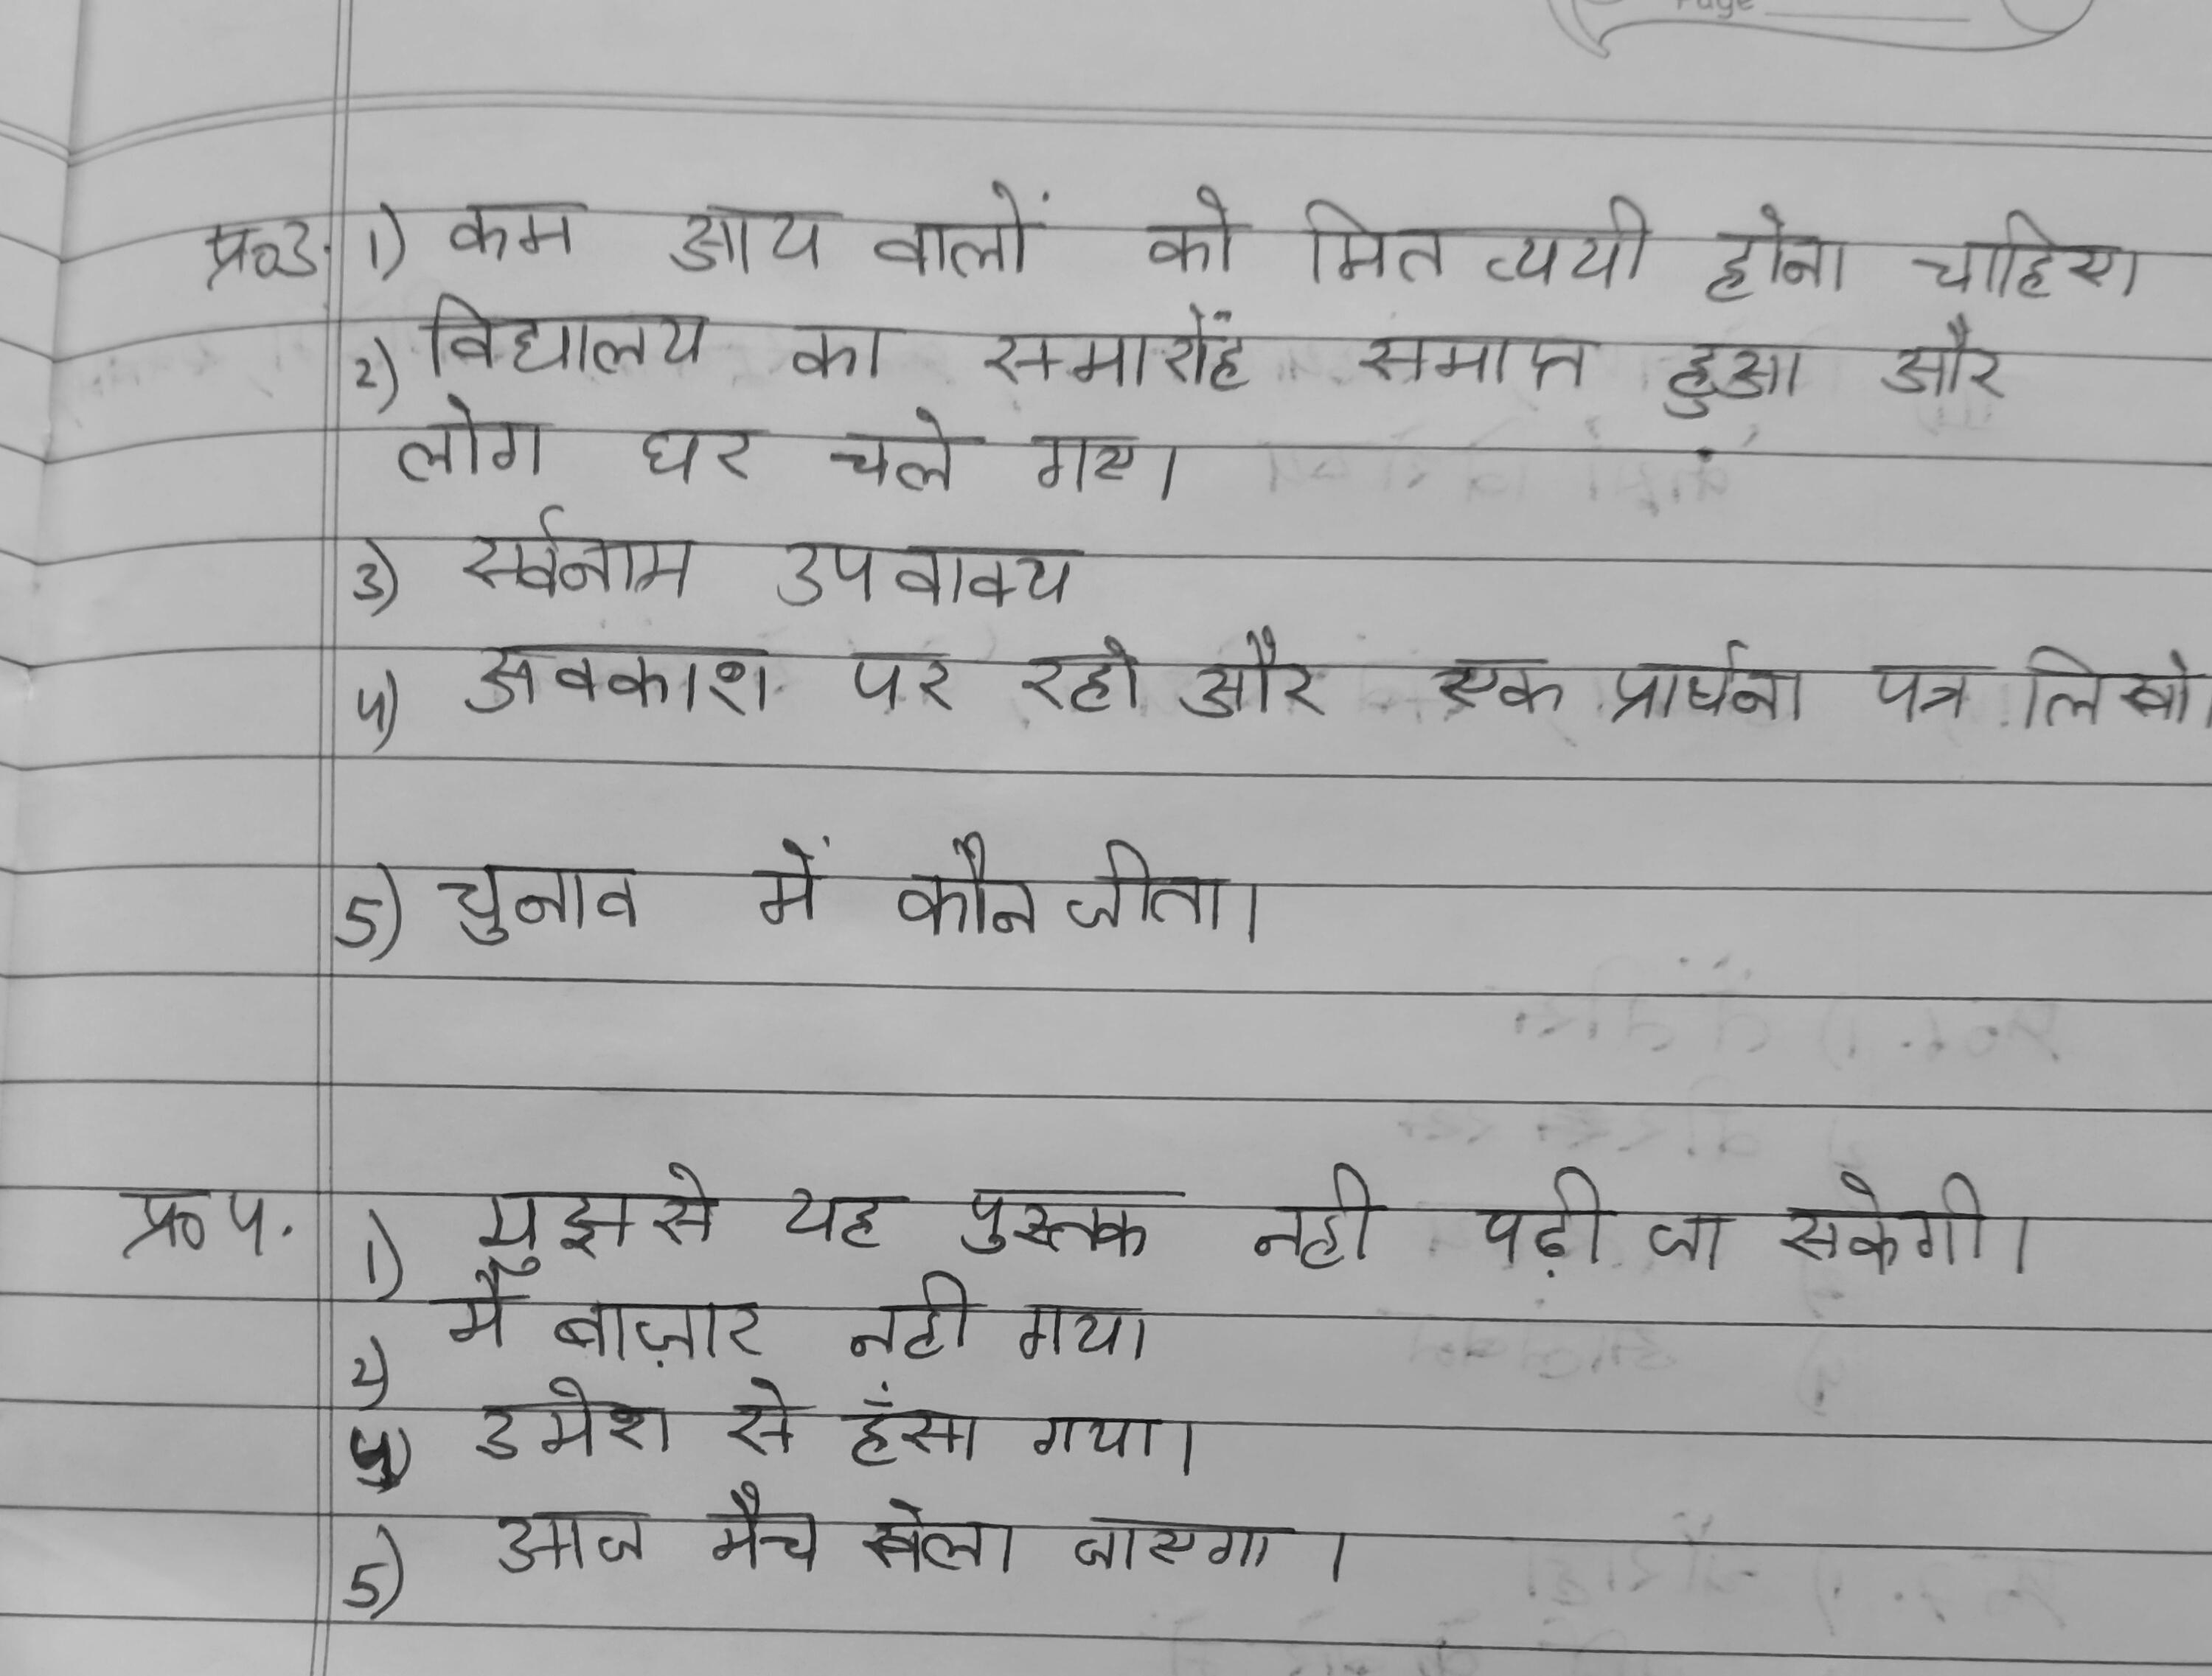 Page
प्र०3. 1) कम आय वालों को मित व्ययी होना चाहिए।
2) विद्यालय का समारोंह समाप्त हुआ और
लोग घर चले गए।
3) सर्वनाम उपवाक्य
4) अवकाश पर रहो और एक प्रार्घना पत्र लिखो।
5) चुनाव में कौन जीता।
प्र० 4. 1) मुझसे यह पुस्तक नही पढ़ी जा सकेगी।
2) मैं बाज़ार नही गया।
4) उमेश से हँसा गया।
5) आज मैच खेला जाएगा।